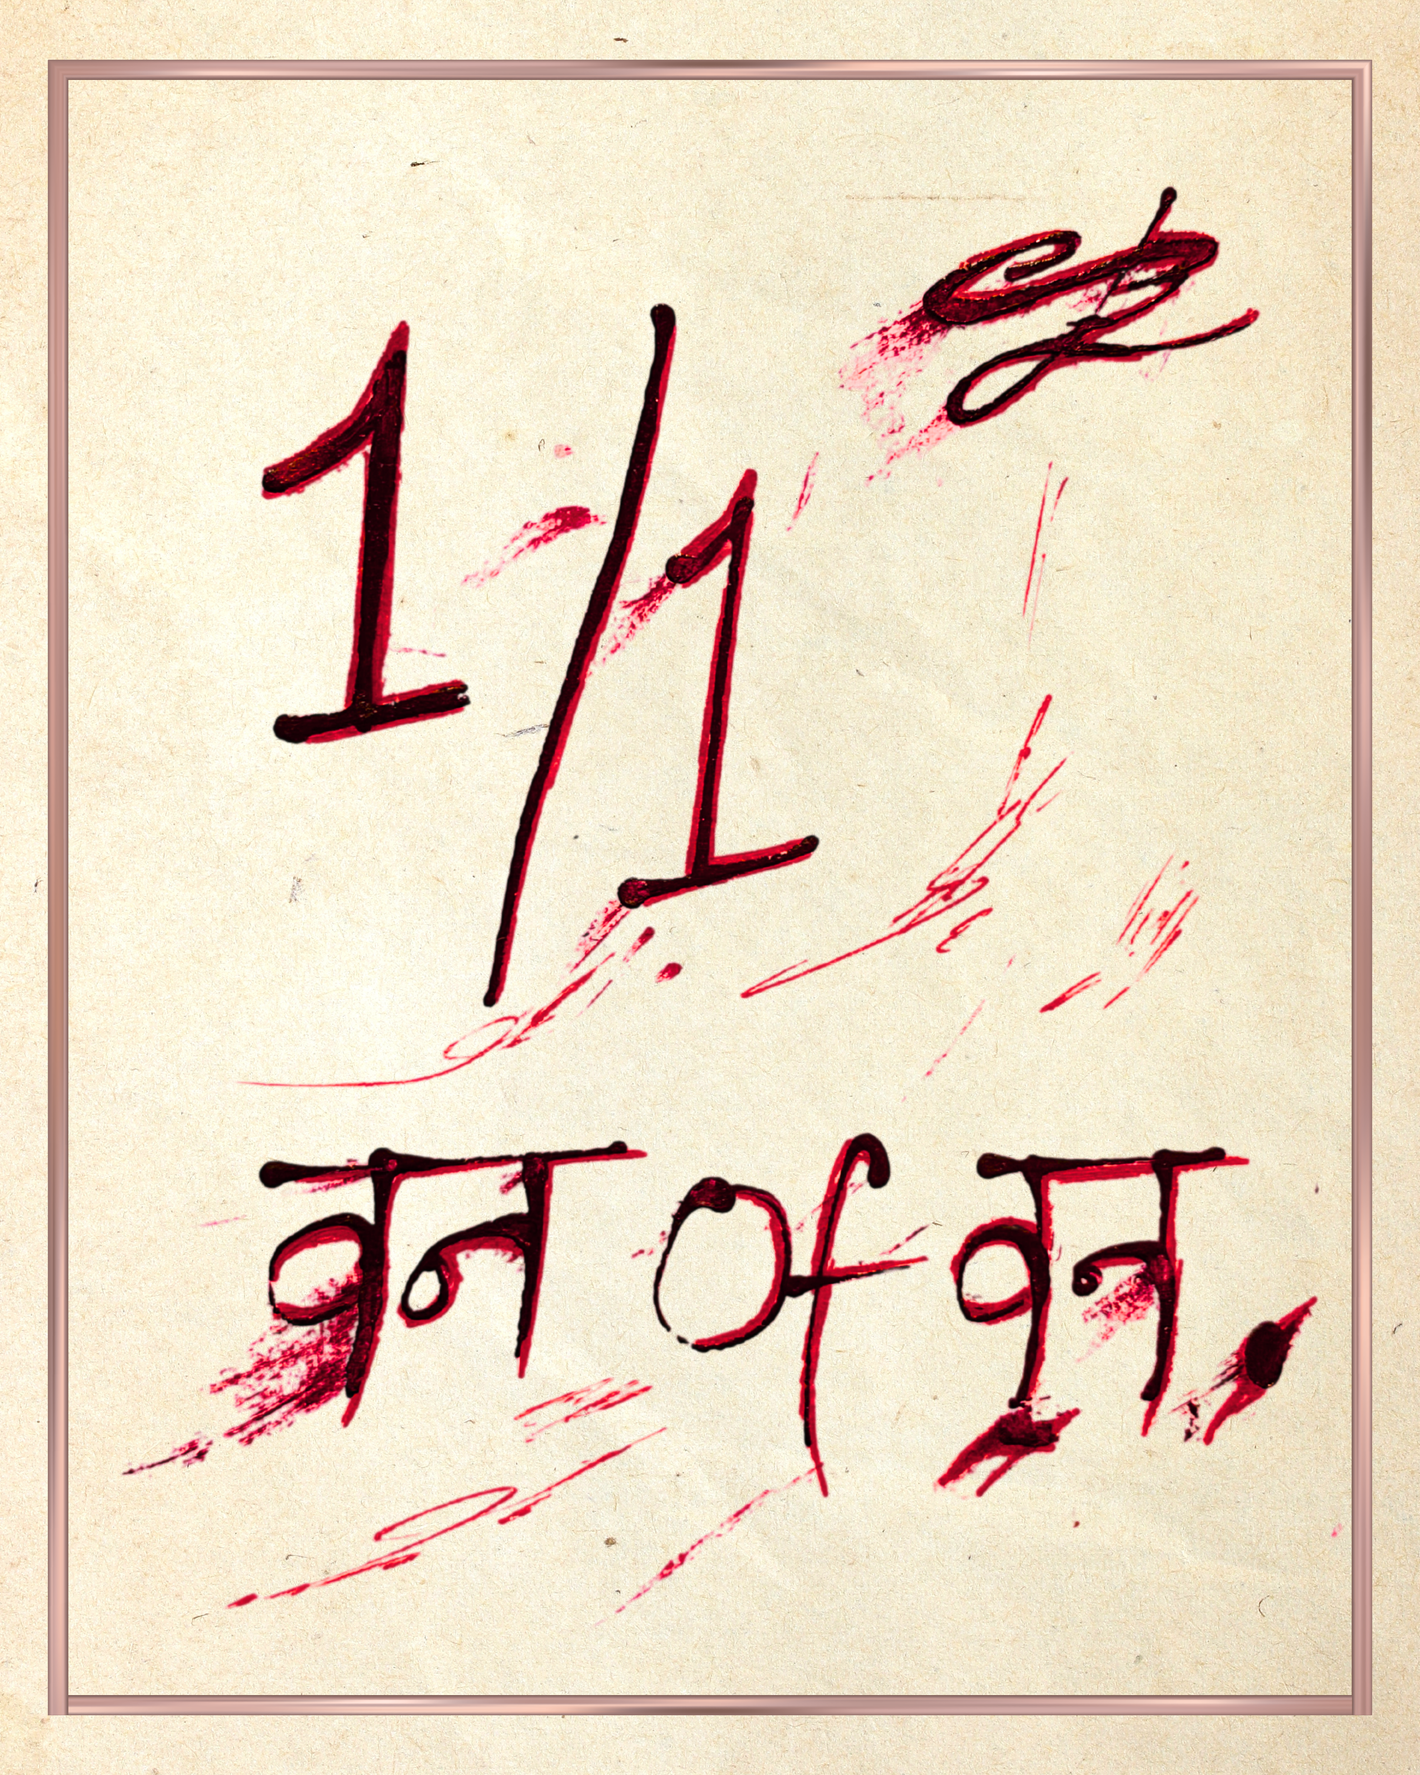 1/1
वन of वन.